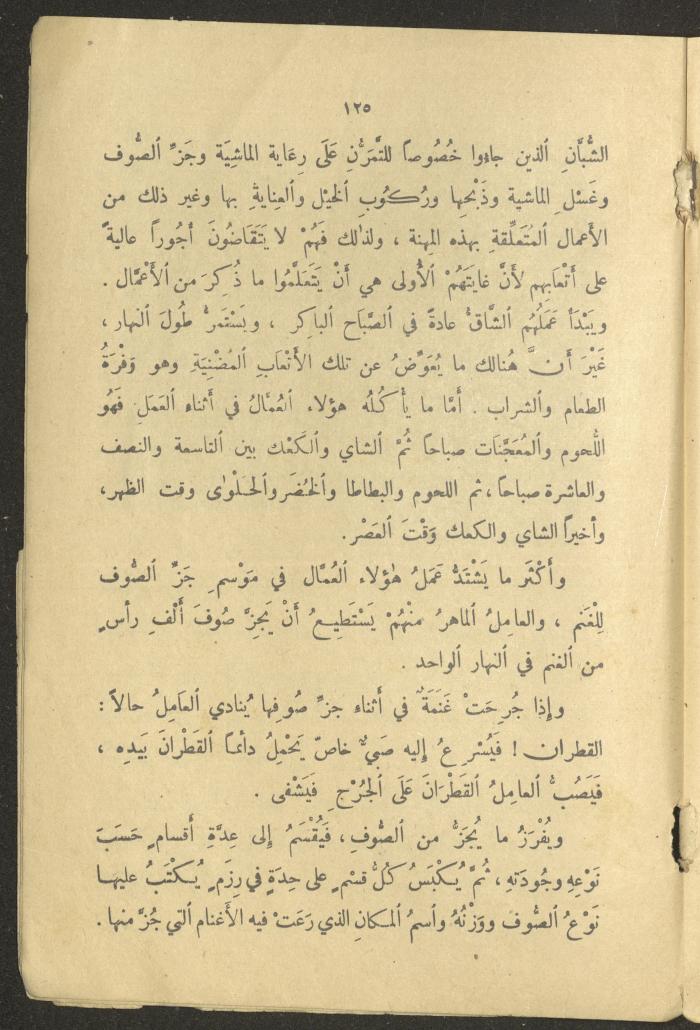 ١٢٥
الشُّبَّانِ ٱلذين جاءوا خُصُوصاً للتَّمَرُّنِ عَلَى رِعَاية الماشِيَة وجَزِّ ٱلصُّوف
وغَسْلِ الماشية وذَبْحِها ورُكُوبِ ٱلخَيْل وٱلعِنايَةِ بها وغير ذلك من
الأَعمال ٱلمُتَعلِّقةِ بهذه المِهنة ، ولذٰلك فَهُمْ لا يَتَقَاضُونَ أُجُوراً عاليةً
على أَتْعابِهم لأَنَّ غايَتَهُمْ ٱلأُولى هي أَنْ يَتَعَلَّمُوا ما ذُكِرَ من ٱلأَعْمَال .
ويَبْدَأُ عَمَلُهُم ٱلشَّاقُّ عادةً في ٱلصَّبَاح ٱلباكِر ، ويَسْتَمرُّ طُولَ ٱلنهار ،
غَيْرَ أَنَّ هُنالك ما يُعَوِّضُ عن تلك الأَتْعَابِ ٱلمُضْنِيَةِ وهو وَفْرَةُ
الطعام وٱلشراب . أَمَّا ما يأْكُلُه هؤلاء ٱلعُمَّالُ في أَثناء ٱلعَمَلِ فَهُو
ٱللُّحوم وٱلمُعَجَّنات صباحاً ثُمْ ٱلشاي وٱلكَعْك بين ٱلتاسعة والنصف
والعاشرة صباحاً ، ثم اللحوم والبطاطا وٱلخُضَر وٱلحَلْوٰى وقت الظهر ،
وأخيراً الشاي والكعك وَقْتَ ٱلعَصْر .
وأَكْثَر ما يَشْتَدُّ عَمَلُ هٰؤلاء ٱلعُمَّال في مَوْسِمِ جَزِّ ٱلصُّوف
لِلْغَنم ، والعامِلُ ٱلماهرُ منْهُمْ يَسْتَطِيعُ أَنْ يَجِزَّ صُوفَ أَلْفِ رأسٍ
من ٱلغنم في ٱلنهار ٱلواحد .
وإِذا جُرِحَتْ غَنَمَةٌ في أَثناء جزِّ صُوفها يُنادي ٱلعَامِلُ حالاً :
القطران ! فَيُسْرِعُ إِليه صَبيٌّ خاصّ يَحْمِلُ دائماً ٱلقَطْرانَ بَيدِه ،
فَيَصُبُّ ٱلعامِلُ ٱلقَطْرَانَ عَلَى ٱلجُرْحِ فَيَشْفى .
ويُفْرَزُ ما يُجَزُّ من ٱلصُّوفِ ، فَيُقْسَمُ إِلى عِدَّةِ أَقسامٍ حَسَبَ
نَوْعِهِ وجُودَتهِ ، ثُمَّ يُكْبَسُ كُلُّ قسْمٍ على حِدَةٍ في رِزَمٍ يُكْتَبُ عليها
نَوْعُ ٱلصُّوف ووَزْنُهُ وٱسمُ ٱلمكانِ الذي رَعَتْ فيه الأَغنام ٱلتي جُزَّ منها .